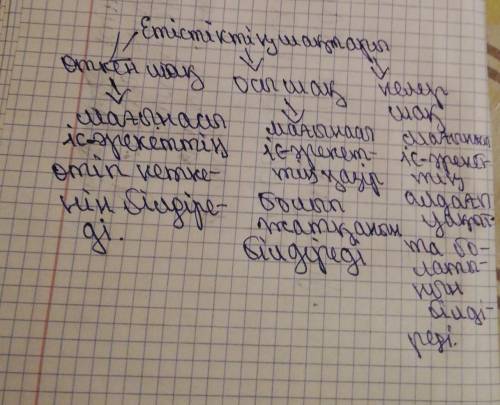 Етістіктің шақтары
өткен шақ
осы шақ
келер
шақ
мағынасы
іс-әрекеттің
өтіп кетке-
нін білдіре-
ді.
мағынасы
іс-әрекет-
тің қазір
болып
жатқанын
білдіреді
мағынасы
іс-әрекет-
тің
алдағы
уақыт-
та бо-
латы-
нын
білді-
реді.